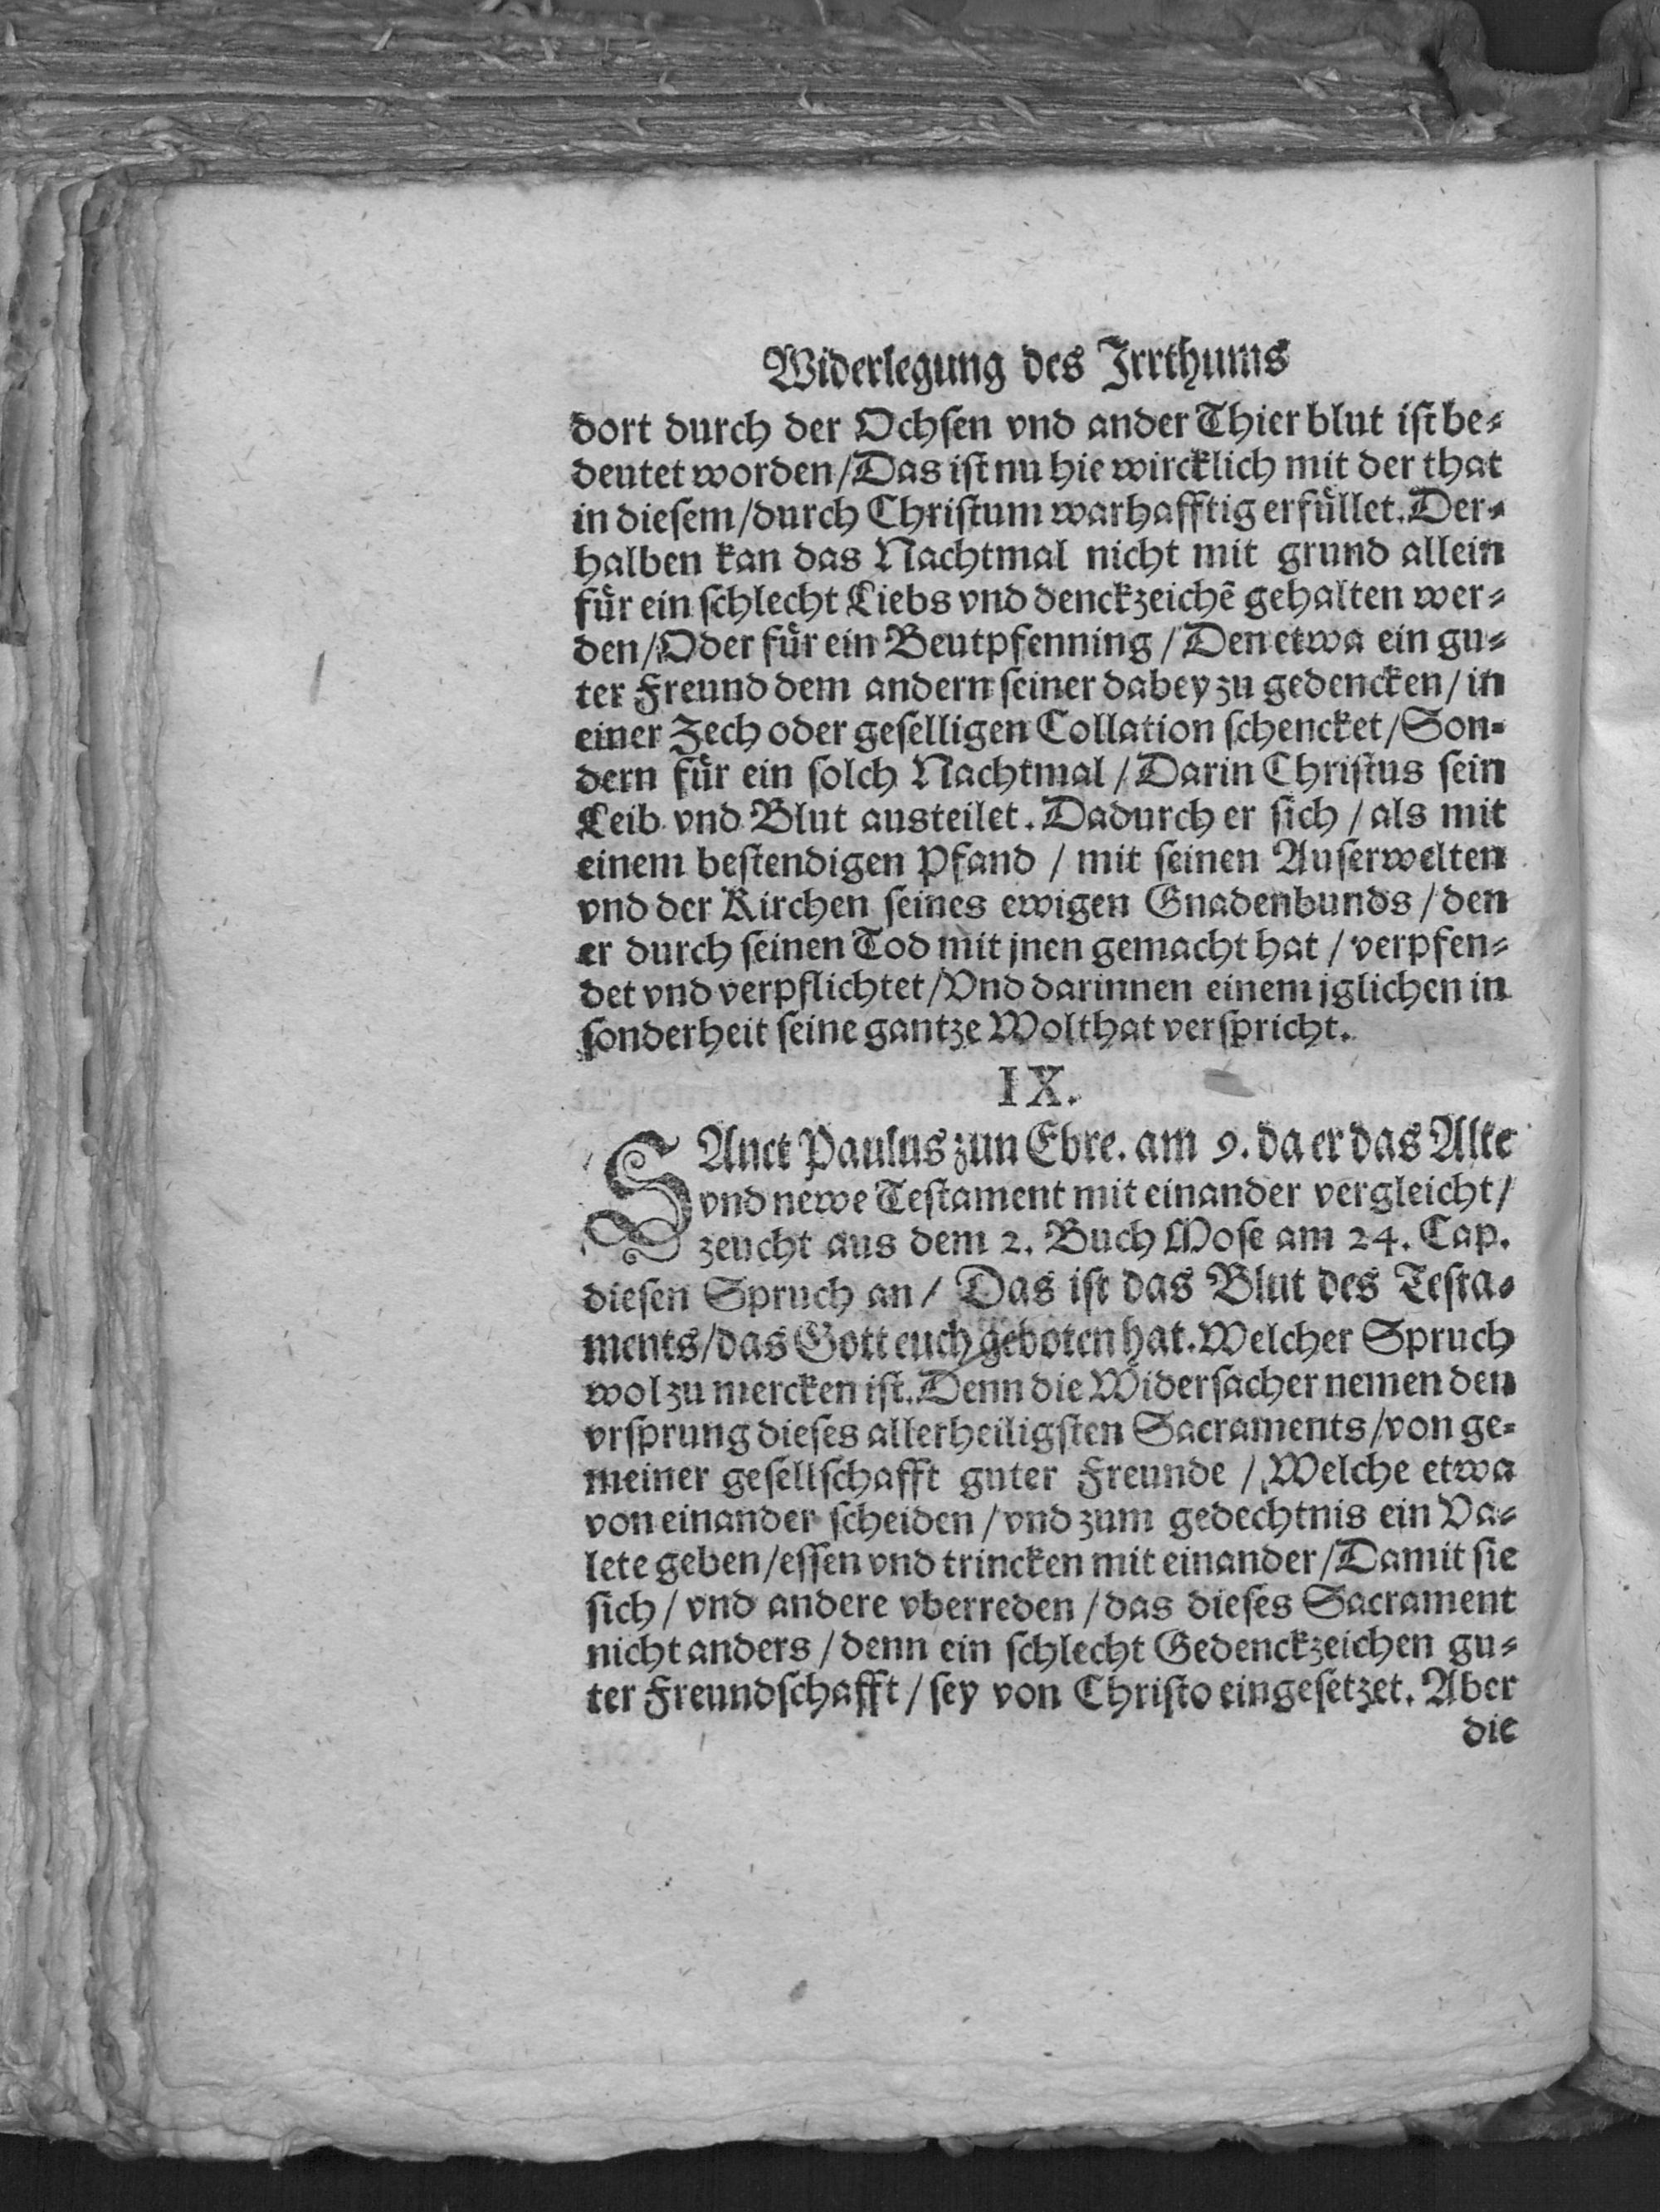 Widerlegung des Irrthums
dort durch der Ochſen vnd ander Thier blut iſt be⸗
deutet worden/Das iſt nu hie wircklich mit der that
in dieſem/durch Chriſtum warhafftig erfüllet. Der⸗
halben kan das Nachtmal nicht mit grund allein
für ein ſchlecht Liebs vnd denckzeichē gehalten wer⸗
den/Oder für ein Beutpfenning/Den etwa ein gu⸗
ter Freund dem andern ſeiner dabey zu gedencken/in
einer Zech oder geſelligen Collation ſchencket/Son⸗
dern für ein ſolch Nachtmal/Darin Chriſtus ſein
Leib vnd Blut austeilet. Dadurch er ſich/als mit
einem beſtendigen Pfand/mit ſeinen Auſerwelten
vnd der Kirchen ſeines ewigen Gnadenbunds/den
er durch ſeinen Tod mit jnen gemacht hat/verpfen⸗
det vnd verpflichtet/Vnd darinnen einem jglichen in
ſonderheit ſeine gantze Wolthat verſpricht.
IX.
SAnct Paulus zun Ebre. am 9. da er das Alte
vnd newe Teſtament mit einander vergleicht/
zeucht aus dem 2. Buch Moſe am 24. Cap.
dieſen Spruch an/Das iſt das Blut des Teſta⸗
ments/das Gott euch geboten hat. Welcher Spruch
wol zu mercken iſt. Denn die Widerſacher nemen den
vrſprung dieſes allerheiligſten Sacraments/von ge⸗
meiner geſellſchafft guter Freunde/Welche etwa
von einander ſcheiden/vnd zum gedechtnis ein Va⸗
lete geben/eſſen vnd trincken mit einander/Damit ſie
ſich/vnd andere vberreden/das dieſes Sacrament
nicht anders/denn ein ſchlecht Gedenckzeichen gu⸗
ter Freundſchafft/ſey von Chriſto eingeſetzet. Aber
die